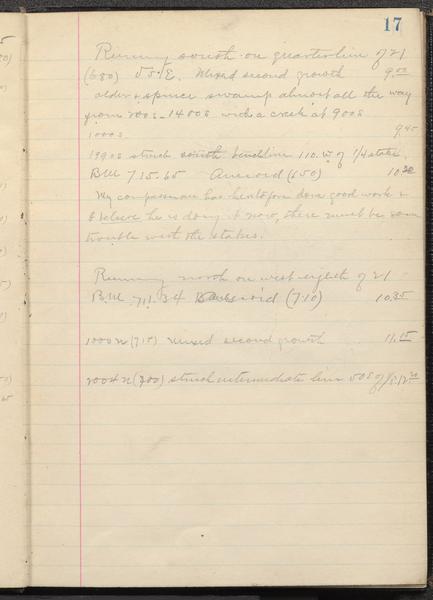 17
Running south on quarterline of 21
(680) V.S.E. Mixed second growth 9.00
alder & spruce swamp almost all the way
from 200s - 1400s with a creek at 900s
1000s 9.45
1990s struck south line 110 w of 1/4 stake,
BM 715.65 Aneroid (650) 10.30
My compassman has heretofore done good work &
I believe he is doing it now, there must be some
trouble with the stakes.
Running north on west eighth of 21
BM 711.34 Aneroid (710) 10.35
1000 n (715) Mixed second growth 11.15
2004 n (700) struck intermediate line 50s of